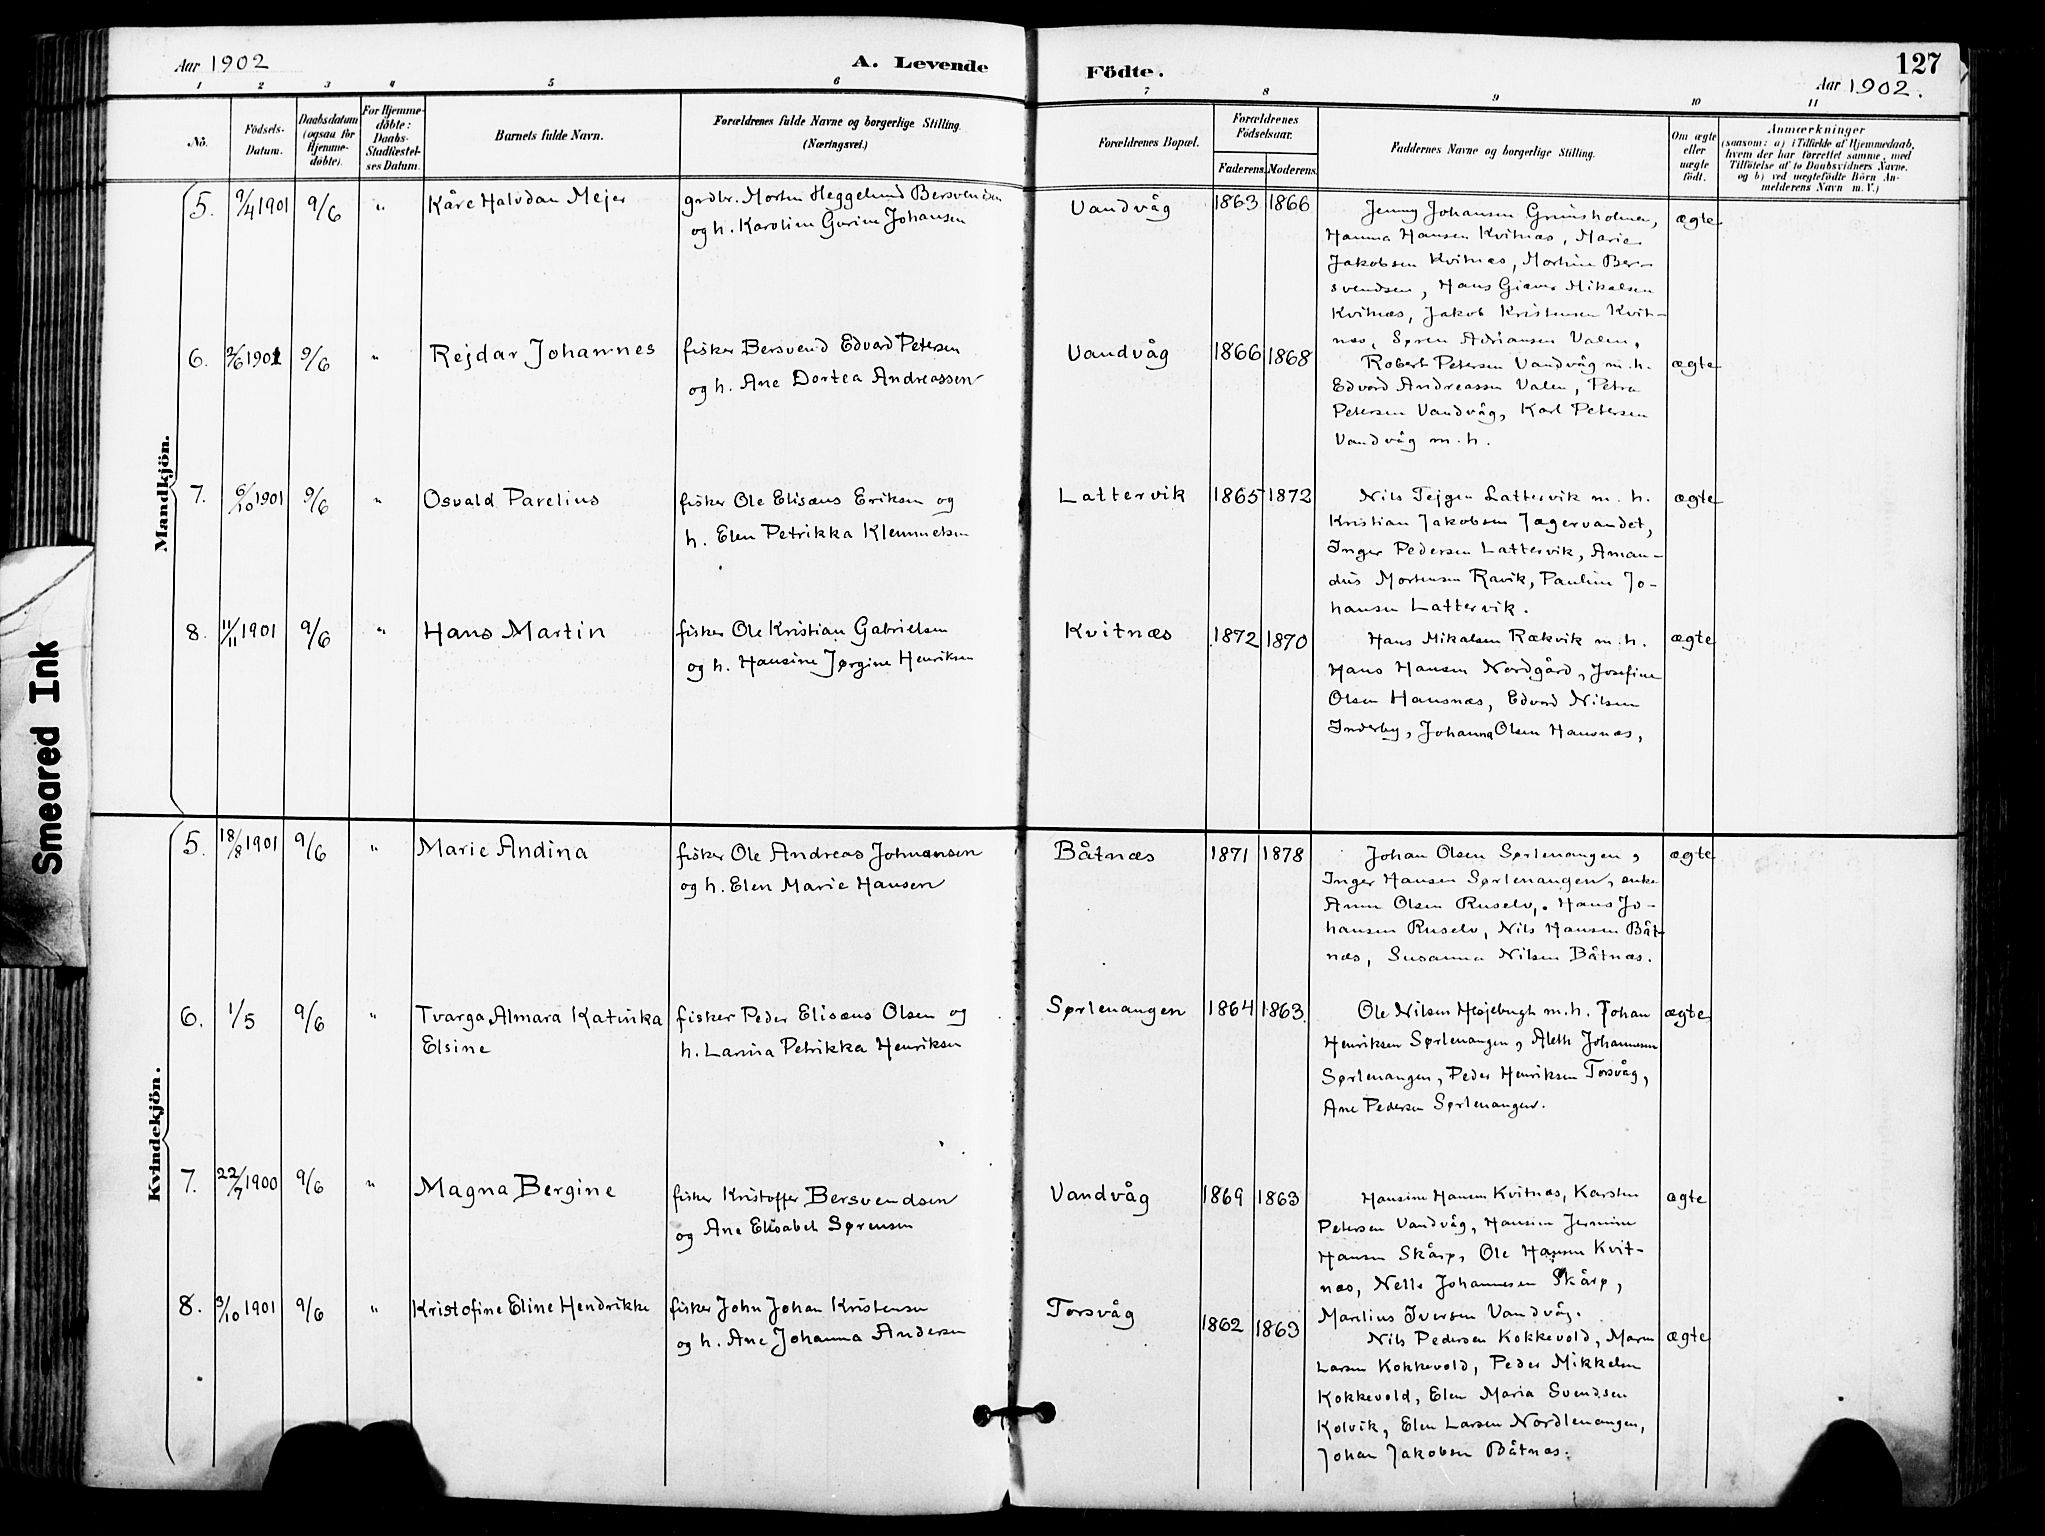 Aar 1902
A. Levende
Födte.
127
Aar 1902.
1 2 3 4 5 6 7 8 9 10 11
No.
Födsels-Datum.
Daabsdatum (ogsaa for Hjemme-döbte).
For Hjemme-döbte: Daabs-Stadfæstel-ses Datum.
Barnets fulde Navn.
Forældrenes fulde Navne og borgerlige Stilling.
(Næringsvei.)
Forældrenes Bopæl.
Forældrenes Födselsaar.
Faderens. Moderens.
Faddernes Navne og borgerlige Stilling.
Om ægte eller uægte födt.
Anmærkninger
(saasom: a) i Tilfælde af Hjemmedaab,
hvem der har forrettet samme, med
Tilföielse af to Daabsvidners Navne.
og b) ved uægtefödte Börn An-
melderens Navn m. V.)
Mandkjön.
5. 9/4 1901 9/6 " Kåre Halvdan Mejer
grdbr. Mortin Heggelund Bersvendsen
og h. Karoline Gurine Johansen
Vandvåg 1863 1866
Jenny Johansen Grimsholmen,
Hanna Hansen Kvitnæs, Marie
Jakobsen Kvitnæs, Mortine Ber-
svendsen, Hans Giæver Mikalsen
Kvitnæs, Jakob Kristensen Kvit-
næs, Søren Adriansen Valen,
ægte
6. 2/6 1901 9/6 " Rejdar Johannes
fisker Bersvend Edvard Petersen
og h. Ane Dortea Andreassen
Vandvåg 1866 1868
Robert Petersen Vandvåg m. h.
Edvard Andreassen Valen, Petra
Petersen Vandvåg, Karl Petersen
Vandvåg m. h.
ægte
7. 6/10 1901 9/6 " Osvald Parelius
fisker Ole Elisæus Eriksen og
h. Elen Petrikka Klemmetsen
Lattervik 1865 1872
Nils Tejgen Lattervik m. h.
Kristian Jakobsen Jægervandet,
Inger Pedersen Lattervik, Aman-
dus Mortensen Ravik, Pauline Jo-
hansen Lattervik.
ægte
8. 11/11 1901 9/6 " Hans Martin
fisker Ole Kristian Gabrielsen
og h. Hansine Jørgine Henriksen
Kvitnæs 1872 1870
Hans Mikalsen Rækvik m. h.
Hans Hansen Nordgård, Josefine
Olsen Hansnæs, Edvard Nilsen
Inderby, Johanna Olsen Hansnæs,
ægte
Kvindekjön.
5. 18/8 1901 9/6 " Marie Andina
fisker Ole Andreas Johansen
og h. Elen Marie Hansen
Båtnæs 1871 1878
Johan Olsen Sørlenangen,
Inger Hansen Sørlenangen, enke
Anne Olsen Ruselv, Hans Jo-
hansen Ruselv, Nils Hansen Båt-
næs, Susanna Nilsen Båtnæs.
ægte
6. 1/5 9/6 " Tvarga Almara Katinka
Elsine
fisker Peder Elisæus Olsen og
h. Larina Petrikka Henriksen
Sørlenangen 1864 1863
Ole Nilsen Hesjebugt m. h. Johan
Henriksen Sørlenangen, Aleth Johannesen
Sørlenangen, Peder Henriksen Torsvåg,
Ane Pedersen Sørlenangen.
ægte
7. 22/7 1900 9/6 " Magna Bergine
fisker Kristoffer Bersvendsen
og Ane Elisabet Sørensen
Vandvåg 1869 1863
Hansine Hansen Kvitnæs, Karsten
Petersen Vandvåg, Hansine Jermine
Hansen Skårp, Ole Hansen Kvit-
næs, Nelle Johannesen Skårp,
Marilius Iversen Vandvåg.
ægte
8. 3/10 1901 9/6 " Kristofine Eline Hendrikke
fisker John Johan Kristensen
og h. Ane Johanna Andersen
Torsvåg 1862 1863
Nils Pedersen Kokkevold, Maren
Larsen Kokkevold, Peder Mikkelsen
Kokkevold, Elen Maria Svendsen
Kolvik, Elen Larsen Nordlenangen,
Johan Jakobsen Båtnæs.
ægte
Smeared Ink